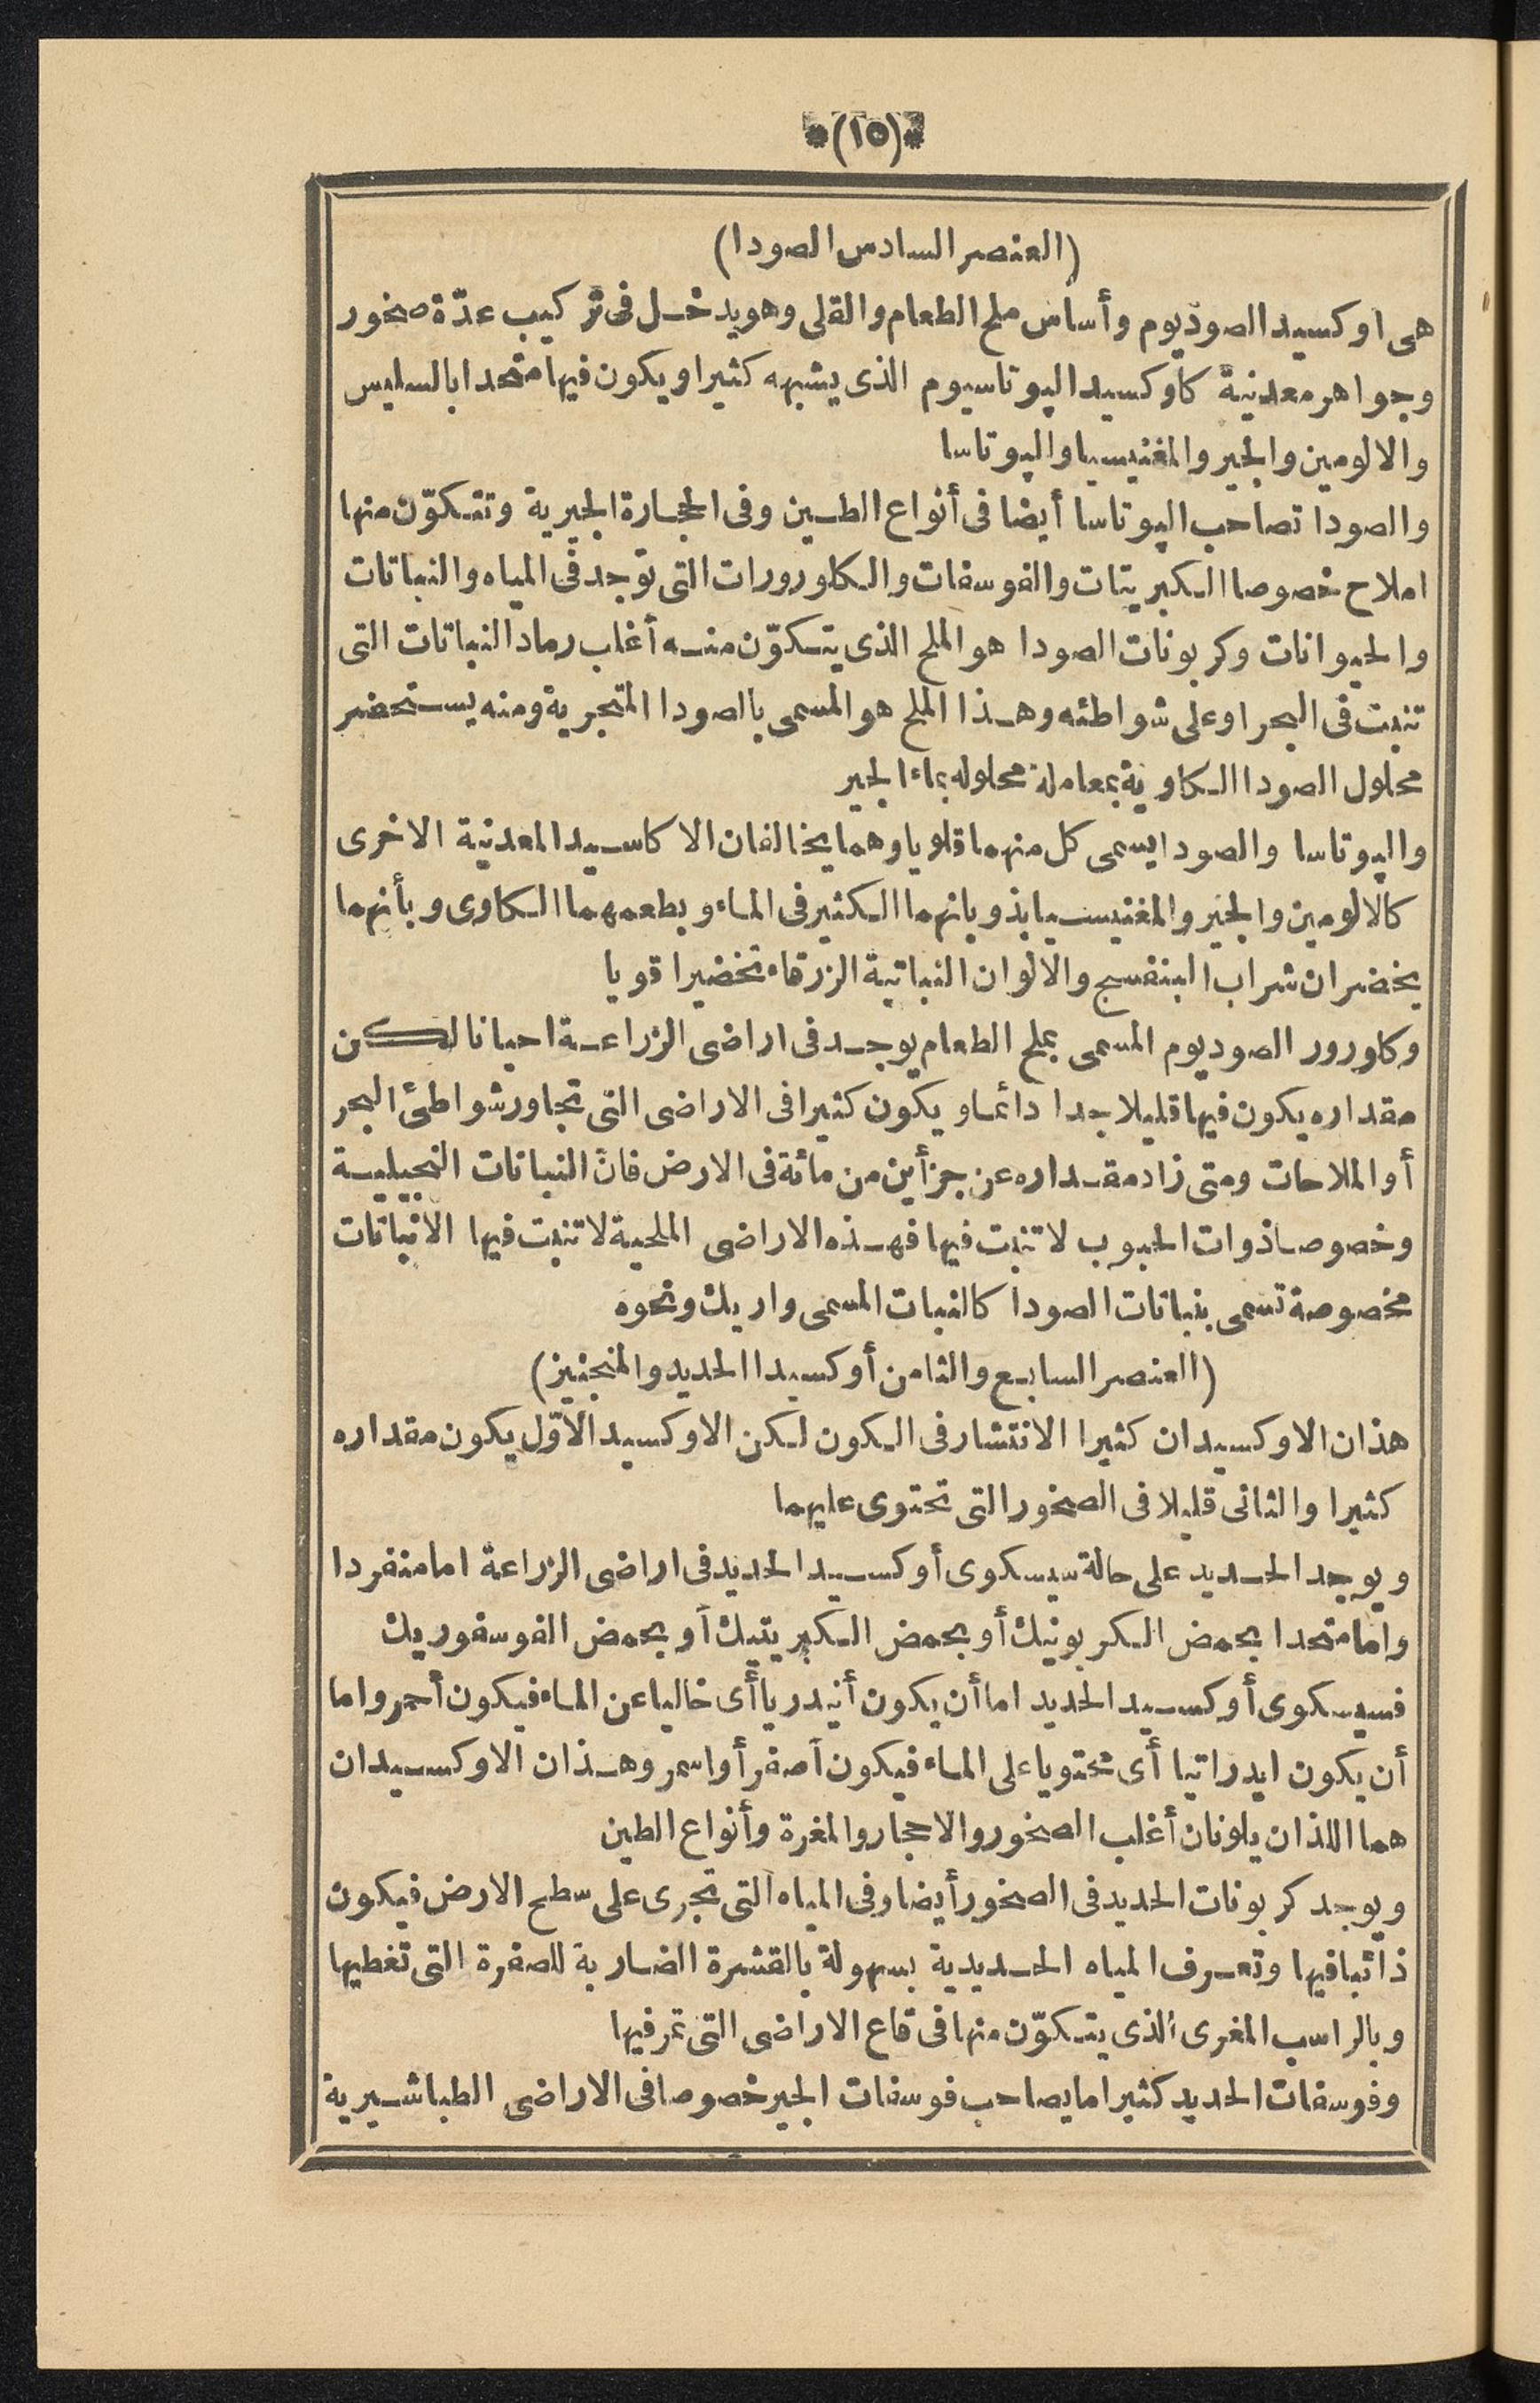 *(١٥)*
(العنصر السادس الصودا)
هى اوكسيد الصوديوم وأساس ملح الطعام والقلى وهو يدخل فى تركيب عدّة صخور
وجواهر معدنية كاوكسيد الپوتاسيوم الذى يشبهه كثيرا ويكون فيها متحدا بالسليس
والالومين والجير والمغنيسيا والپوتاسا
والصودا تصاحب الپوتاسا أيضا فى أنواع الطين وفى الحجارة الجيرية وتتكوّن منها
املاح خصوصا الكبريتات والفوسفات والكلورورات التى توجد فى المياه والنباتات
والحيوانات وكربونات الصودا هو الملح الذى يتكوّن منه أغلب رماد النباتات التى
تنبت فى البحر او على شواطئه وهذا الملح هو المسمى بالصودا المتجرية ومنه يستحضر
محلول الصودا الكاوية بمعاملة محلوله بماء الجير
والپوتاسا والصودا يسمى كل منهما قلويا وهما يخالفان الاكاسيد المعدنية الاخرى
كالالومين والجير والمغنيسيا بذوبانهما الكثير فى الماء وبطعمهما الكاوى وبأنهما
يخضران شراب البنفسج والالوان النباتية الزرقاء تخضيرا قويا
وكلورور الصوديوم المسمى بملح الطعام يوجد فى اراضى الزراعة احيانا لكن
مقداره يكون فيها قليلا جدا دائما ويكون كثيرا فى الاراضى التى تجاور شواطئ البحر
أو الملاحات ومتى زاد مقداره عن جزأين من مائة فى الارض فانّ النباتات النجيلية
وخصوصا ذوات الحبوب لا تنبت فيها فهذه الاراضى الملحية لا تنبت فيها الا نباتات
مخصوصة تسمى بنباتات الصودا كالنبات المسمى واريك ونحوه
(العنصر السابع والثامن أوكسيدا الحديد والمنجنيز)
هذان الاوكسيدان كثيرا الانتشار فى الكون لكن الاوكسيد الاوّل يكون مقداره
كثيرا والثانى قليلا فى الصخور التى تحتوى عليهما
ويوجد الحديد على حالة سيسكوى أوكسيد الحديد فى اراضى الزراعة اما منفردا
واما متحدا بحمض الكربونيك أو بحمض الكبريتيك أو بحمض الفوسفوريك
فسيسكوى أوكسيد الحديد اما أن يكون أنيدريا أى خاليا عن الماء فيكون أحمر واما
أن يكون ايدراتيا أى محتويا على الماء فيكون أصفر أو اسمر وهذان الاوكسيدان
هما اللذان يلونان أغلب الصخور والاحجار والمغرة وأنواع الطين
ويوجد كربونات الحديد فى الصخور أيضا وفى المياه التى تجرى على سطح الارض فيكون
ذائبا فيها وتعرف المياه الحديدية بسهولة بالقشرة الضاربة للصفرة التى تغطيها
وبالراسب المغرى الذى يتكوّن منها فى قاع الاراضى التى تمر فيها
وفوسفات الحديد كثيرا ما يصاحب فوسفات الجير خصوصا فى الاراضى الطباشيرية